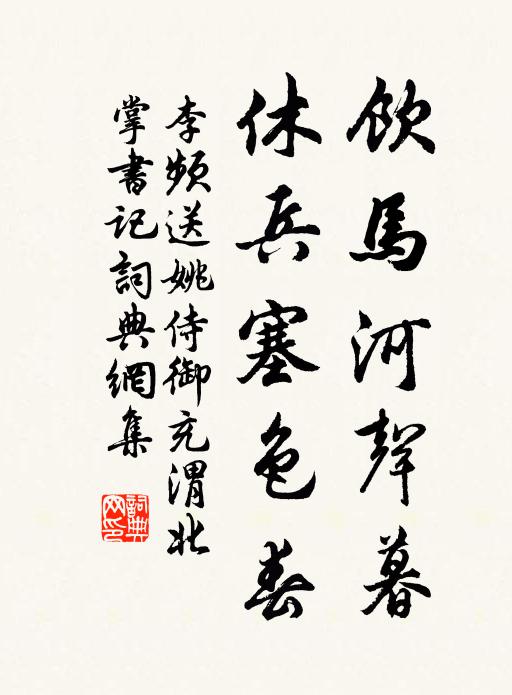 飲馬河聲暮
休兵塞色春
李頻送姚侍御充渭北
掌書記詞典網集
詞典網印